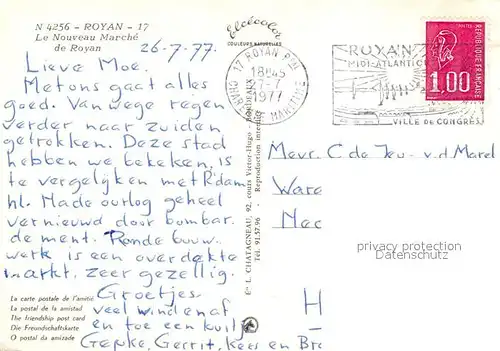 N 4256 - ROYAN - 17
Le Nouveau Marché
de Royan
26-7-77.
Lieve Moe.
Met ons gaat alles
goed. Vanwege regen
verder naar zuiden
getrokken. Deze stad
hebben we bekeken, is
te vergelijken met R'dam
nl. Na de ourlog geheel
vernieuwd door bombar.
dement. Ronde bouw.
werk is een overdekte
markt. zeer gezellig.
Groetjes
veel wind en af
en toe een kuil
Gepke, Gerrit, Kees en Bre
La carte postale de l'amitié
La postal de la amistad
The friendship post card
Die Freundschaftskarte
O postal da amizade
Elcécolor
COULEURS NATURELLES
Ets L. CHATAGNEAU, 92, cours Victor-Hugo - BORDEAUX
Tél. 91.57.96 - Reproduction interdite
17 ROYAN PAL
18H45
7-7
1977
CHARENTE MARITIME
ROYAN
MIDI-ATLANTIQUE
VILLE DE CONGRES
REPUBLIQUE FRANÇAISE
1,00
Mevr. C de Jeu - v.d Marel
Ware
Nee
H
privacy protection
Datenschutz